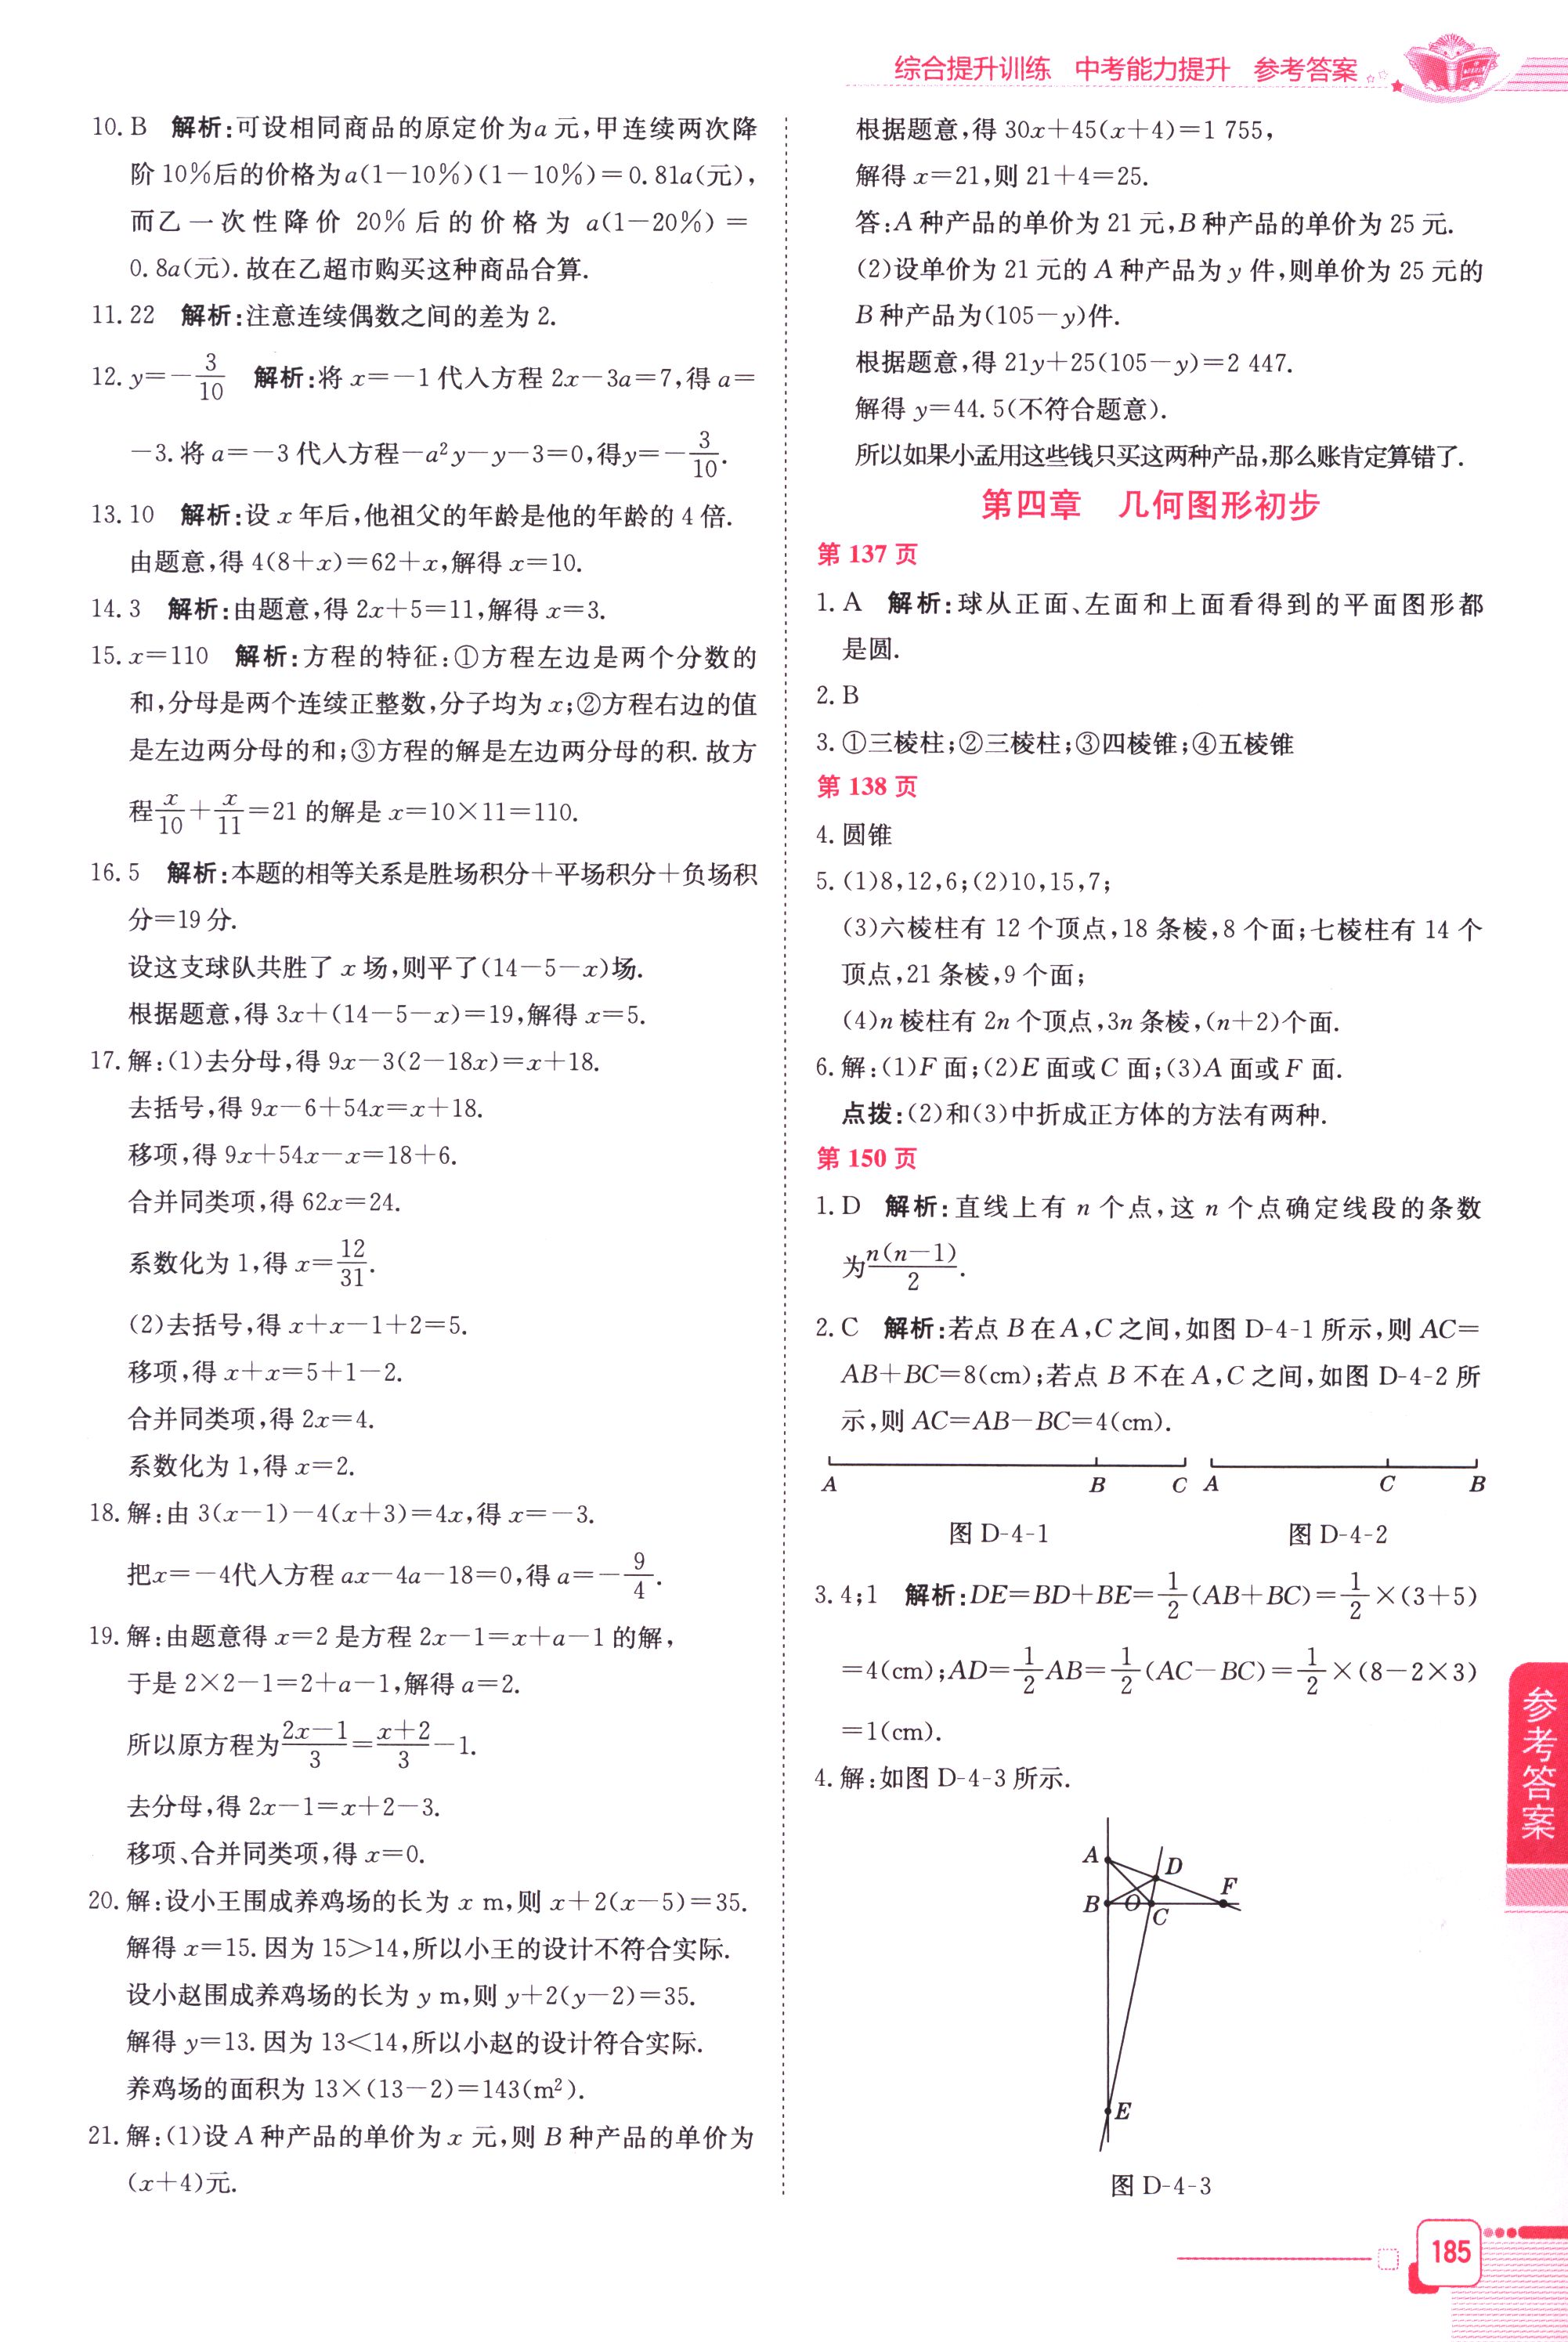 综合提升训练 中考能力提升 参考答案
10. B 解析:可设相同商品的原定价为a 元,甲连续两次降
阶 10%后的价格为a(1-10%)(1-10%)=0.81a(元),
而乙一次性降价 20% 后的价格为 a(1-20%)=
0.8a(元).故在乙超市购买这种商品合算.
11. 22 解析:注意连续偶数之间的差为 2.
12. y=-3/10 解析:将 x=-1 代入方程 2x-3a=7,得 a=
-3.将 a=-3 代入方程-a²y-y-3=0,得y=-3/10.
13. 10 解析:设 x 年后,他祖父的年龄是他的年龄的 4 倍.
由题意,得 4(8+x)=62+x,解得 x=10.
14. 3 解析:由题意,得 2x+5=11,解得 x=3.
15. x=110 解析:方程的特征:①方程左边是两个分数的
和,分母是两个连续正整数,分子均为 x;②方程右边的值
是左边两分母的和;③方程的解是左边两分母的积.故方
程x/10+x/11=21 的解是 x=10×11=110.
16. 5 解析:本题的相等关系是胜场积分+平场积分+负场积
分=19 分.
设这支球队共胜了 x 场,则平了(14-5-x)场.
根据题意,得 3x+(14-5-x)=19,解得 x=5.
17. 解:(1)去分母,得 9x-3(2-18x)=x+18.
去括号,得 9x-6+54x=x+18.
移项,得 9x+54x-x=18+6.
合并同类项,得 62x=24.
系数化为 1,得 x=12/31.
(2)去括号,得 x+x-1+2=5.
移项,得 x+x=5+1-2.
合并同类项,得 2x=4.
系数化为 1,得 x=2.
18. 解:由 3(x-1)-4(x+3)=4x,得 x=-3.
把x=-4代入方程 ax-4a-18=0,得 a=-9/4.
19. 解:由题意得 x=2 是方程 2x-1=x+a-1 的解,
于是 2×2-1=2+a-1,解得 a=2.
所以原方程为(2x-1)/3=(x+2)/3-1.
去分母,得 2x-1=x+2-3.
移项、合并同类项,得 x=0.
20. 解:设小王围成养鸡场的长为 x m,则 x+2(x-5)=35.
解得 x=15.因为 15>14,所以小王的设计不符合实际.
设小赵围成养鸡场的长为 y m,则 y+2(y-2)=35.
解得 y=13.因为 13<14,所以小赵的设计符合实际.
养鸡场的面积为 13×(13-2)=143(m²).
21. 解:(1)设 A 种产品的单价为 x 元,则 B 种产品的单价为
(x+4)元.
根据题意,得 30x+45(x+4)=1 755,
解得 x=21,则 21+4=25.
答:A 种产品的单价为 21 元,B 种产品的单价为 25 元.
(2)设单价为 21 元的 A 种产品为 y 件,则单价为 25 元的
B 种产品为(105-y)件.
根据题意,得 21y+25(105-y)=2 447.
解得 y=44.5(不符合题意).
所以如果小孟用这些钱只买这两种产品,那么账肯定算错了.
第四章 几何图形初步
第 137 页
1. A 解析:球从正面、左面和上面看得到的平面图形都
是圆.
2. B
3. ①三棱柱;②三棱柱;③四棱锥;④五棱锥
第 138 页
4. 圆锥
5. (1)8,12,6;(2)10,15,7;
(3)六棱柱有 12 个顶点,18 条棱,8 个面;七棱柱有 14 个
顶点,21 条棱,9 个面;
(4)n 棱柱有 2n 个顶点,3n 条棱,(n+2)个面.
6. 解:(1)F 面;(2)E 面或 C 面;(3)A 面或 F 面.
点拨:(2)和(3)中折成正方体的方法有两种.
第 150 页
1. D 解析:直线上有 n 个点,这 n 个点确定线段的条数
为n(n-1)/2.
2. C 解析:若点 B 在 A,C 之间,如图 D-4-1 所示,则 AC=
AB+BC=8(cm);若点 B 不在 A,C 之间,如图 D-4-2 所
示,则 AC=AB-BC=4(cm).
A B C A C B
图 D-4-1 图 D-4-2
3. 4;1 解析:DE=BD+BE=1/2(AB+BC)=1/2×(3+5)
=4(cm);AD=1/2AB=1/2(AC-BC)=1/2×(8-2×3)
=1(cm).
4. 解:如图 D-4-3 所示.
A D
F
B O C
E
图 D-4-3
参考答案
185